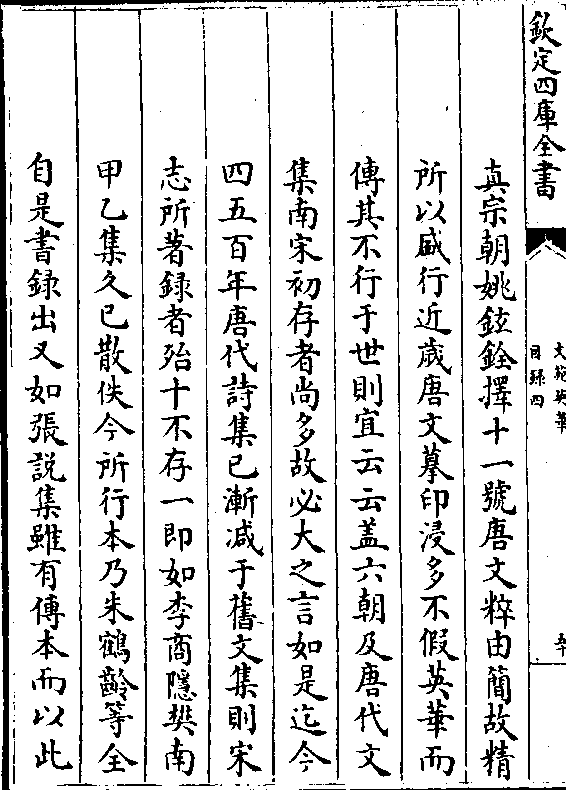 欽定四庫全書
文苑英華
目録四
真宗朝姚鉉銓擇十一號唐文粹由簡故精
所以盛行近歲唐文摹印浸多不假英華而
傳其不行于世則宜云云蓋六朝及唐代文
集南宋初存者尚多故必大之言如是迄今
四五百年唐代詩集已漸减于舊文集則宋
志所著録者殆十不存一即如李商隱樊南
甲乙集久已散佚今所行本乃朱鶴齡等全
自是書録出又如張説集雖有傳本而以此